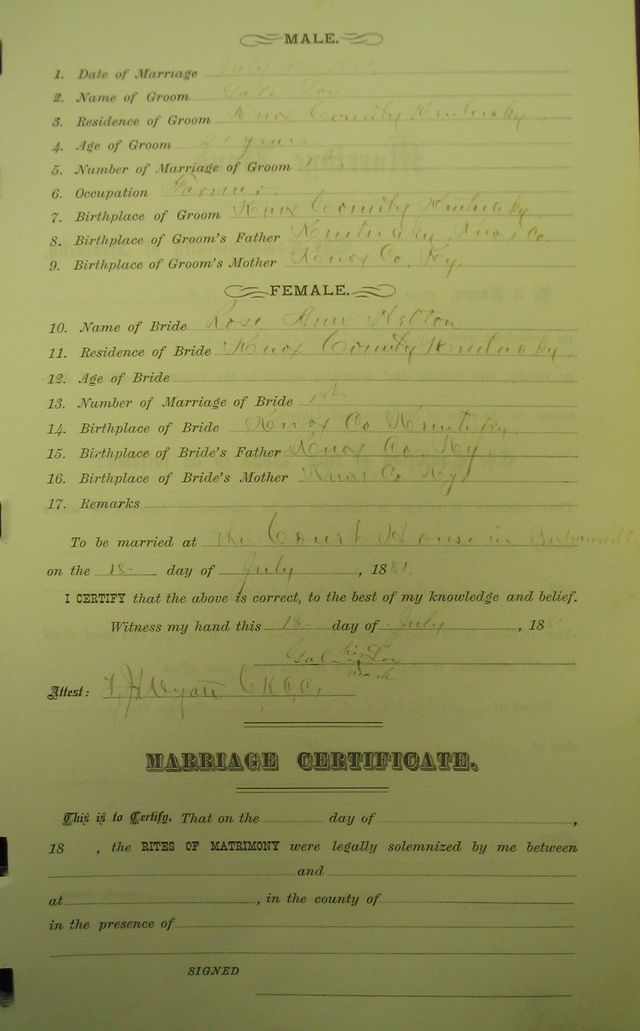 MALE.
1. Date of Marriage July 18
2. Name of Groom
3. Residence of Groom Knox County Kentucky
4. Age of Groom 21 years
5. Number of Marriage of Groom 1st
6. Occupation Farmer
7. Birthplace of Groom Knox County Kentucky
8. Birthplace of Groom's Father Kentucky Knox Co.
9. Birthplace of Groom's Mother Knox Co. Ky.
FEMALE.
10. Name of Bride Rose Ann Helton
11. Residence of Bride Knox County Kentucky.
12. Age of Bride
13. Number of Marriage of Bride 1st
14. Birthplace of Bride Knox Co Kentucky
15. Birthplace of Bride's Father Knox Co. Ky
16. Birthplace of Bride's Mother Knox Co Ky.
17. Remarks
To be married at The Court House in Barbourville
on the 18 day of July, 1881.
I CERTIFY that the above is correct, to the best of my knowledge and belief.
Witness my hand this 18 day of July, 1881
his
mark
Attest: Wyatt C.K.C.C.
MARRIAGE CERTIFICATE.
This is to Certify, That on the day of ,
18 , the RITES OF MATRIMONY were legally solemnized by me between
and
at , in the county of
in the presence of
SIGNED